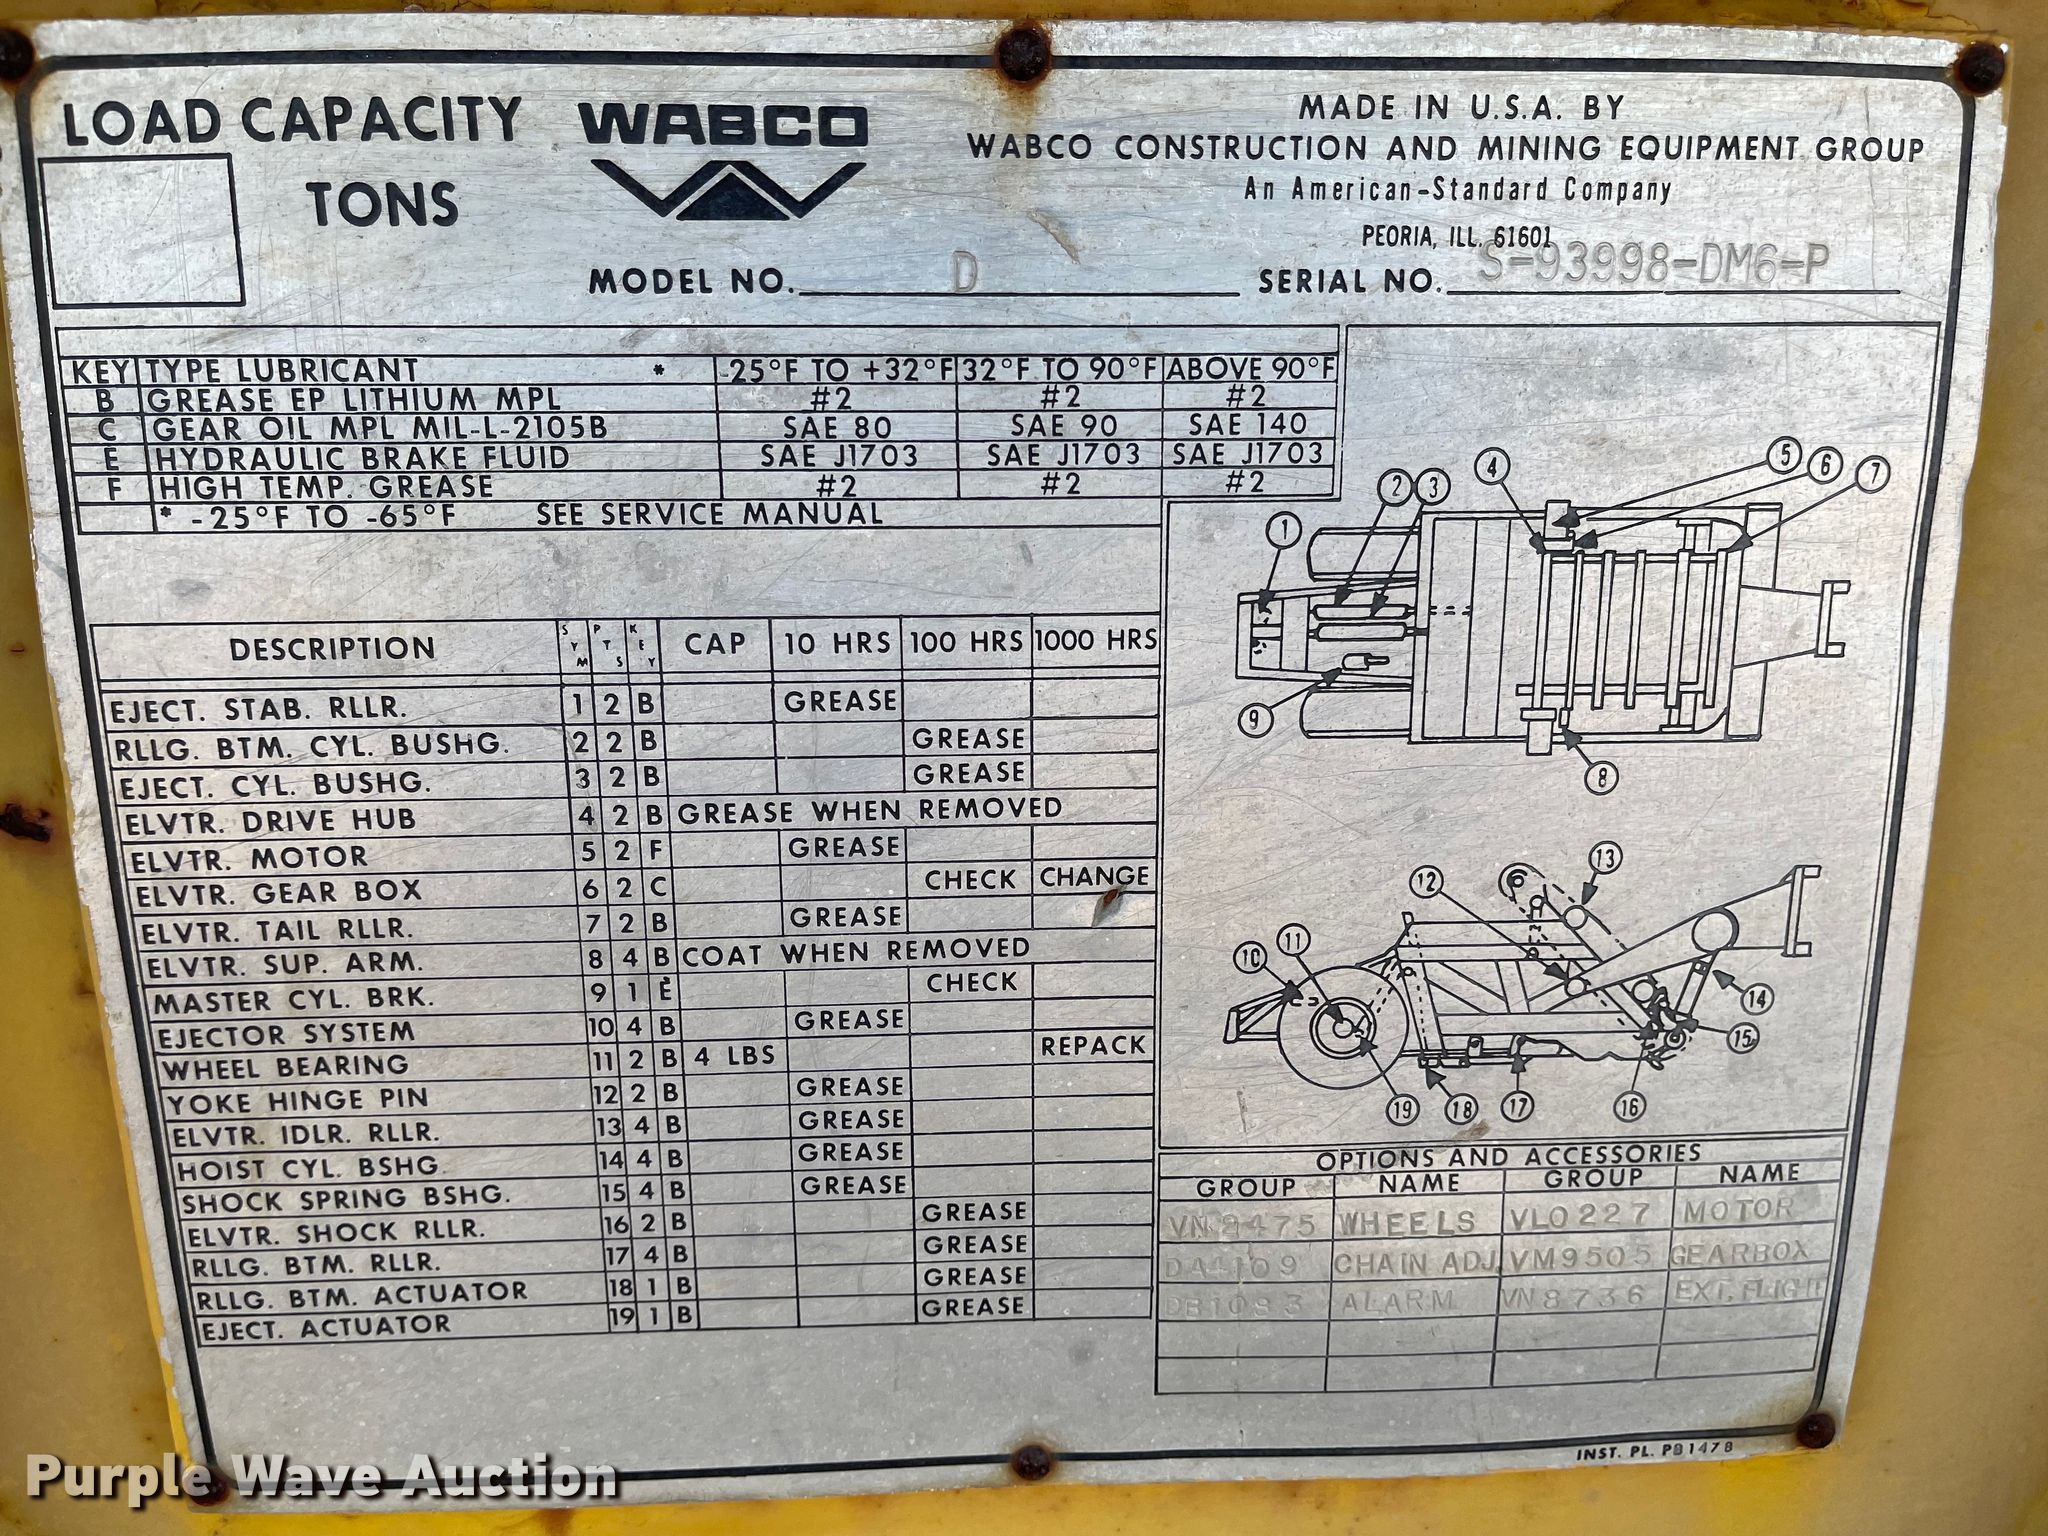 LOAD CAPACITY
TONS
WABCO
MADE IN U.S.A. BY
WABCO CONSTRUCTION AND MINING EQUIPMENT GROUP
An American-Standard Company
PEORIA, ILL. 61601
MODEL NO. D
SERIAL NO. S-93998-DM6-P
KEY TYPE LUBRICANT * -25°F TO +32°F 32°F TO 90°F ABOVE 90°F
B GREASE EP LITHIUM MPL #2 #2 #2
C GEAR OIL MPL MIL-L-2105B SAE 80 SAE 90 SAE 140
E HYDRAULIC BRAKE FLUID SAE J1703 SAE J1703 SAE J1703
F HIGH TEMP. GREASE #2 #2 #2
* -25°F TO -65°F SEE SERVICE MANUAL
DESCRIPTION SYM PTS KEY CAP 10 HRS 100 HRS 1000 HRS
EJECT. STAB. RLLR. 1 2 B GREASE
RLLG. BTM. CYL. BUSHG. 2 2 B GREASE
EJECT. CYL. BUSHG. 3 2 B GREASE
ELVTR. DRIVE HUB 4 2 B GREASE WHEN REMOVED
ELVTR. MOTOR 5 2 F GREASE
ELVTR. GEAR BOX 6 2 C CHECK CHANGE
ELVTR. TAIL RLLR. 7 2 B GREASE
ELVTR. SUP. ARM. 8 4 B COAT WHEN REMOVED
MASTER CYL. BRK. 9 1 E CHECK
EJECTOR SYSTEM 10 4 B GREASE
WHEEL BEARING 11 2 B 4 LBS REPACK
YOKE HINGE PIN 12 2 B GREASE
ELVTR. IDLR. RLLR. 13 4 B GREASE
HOIST CYL. BSHG. 14 4 B GREASE
SHOCK SPRING BSHG. 15 4 B GREASE
ELVTR. SHOCK RLLR. 16 2 B GREASE
RLLG. BTM. RLLR. 17 4 B GREASE
RLLG. BTM. ACTUATOR 18 1 B GREASE
EJECT. ACTUATOR 19 1 B GREASE
1 2 3 4 5 6 7
9 8
10 11 12 13
14 15
19 18 17 16
OPTIONS AND ACCESSORIES
GROUP NAME GROUP NAME
WHEELS VLO227 MOTOR
CHAIN ADJ. VM9505 GEARBOX
ALARM VN8736 EXT. FLIGHT
INST. PL. PB1478
Purple Wave Auction